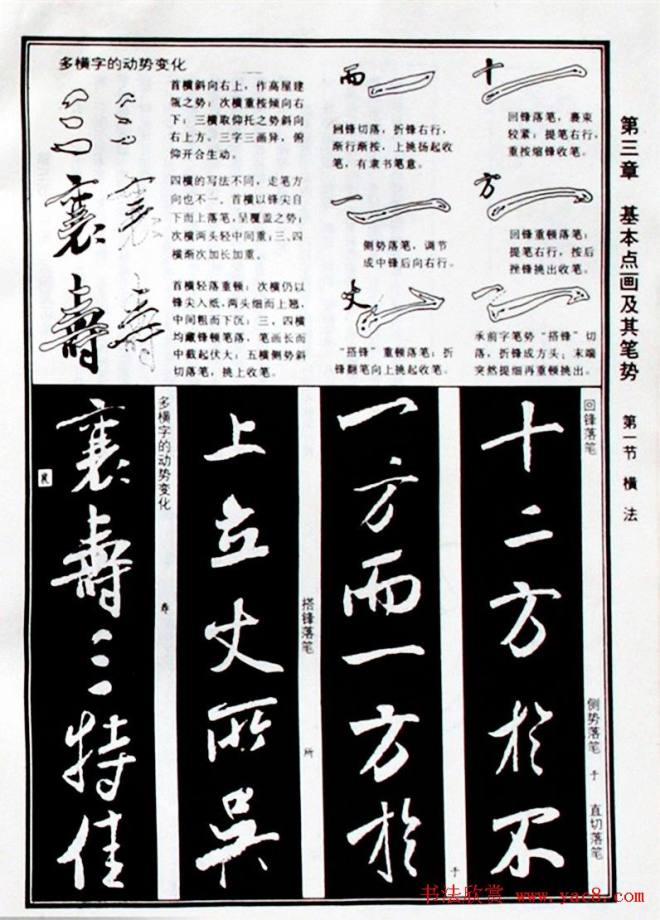 第三章 基本点画及其笔势 第一节 横法
多横字的动势变化
首横斜向右上，作高屋建
瓴之势；次横重按倾向右
下；三横取仰托之势斜向
右上方。三字三画异，俯
仰开合生动。
四横的写法不同，走笔方
向也不一。首横以锋尖自
下而上落笔，呈覆盖之势；
次横两头轻中间重；三、四
横渐次加长加重。
首横轻落重顿；次横仍以
锋尖入纸，两头细而上翘，
中间粗而下沉；三、四横
均藏锋顿笔落，笔画长而
中截起伏大；五横侧势斜
切落笔，挑上收笔。
襄
壽
而
回锋切落，折锋右行，
渐行渐按，上挑扬起收
笔，有隶书笔意。
一
侧势落笔，调节
成中锋后向右行。
丈
“搭锋”重顿落笔；折
锋翻笔向上挑起收笔。
十
回锋落笔，裹束
较紧；提笔右行，
重按缩锋收笔。
方
回锋重顿落笔；
提笔右行，按后
挫锋挑出收笔。
承前字笔势“搭锋”切
落，折锋成方头；末端
突然提细再重顿挑出。
回锋落笔
侧势落笔
于
直切落笔
十二方於不
一方而一方於
于
搭锋落笔
所
上立丈所吴
多横字的动势变化
寿
襄壽三特佳
襄
书法欣赏 www.yac8.com